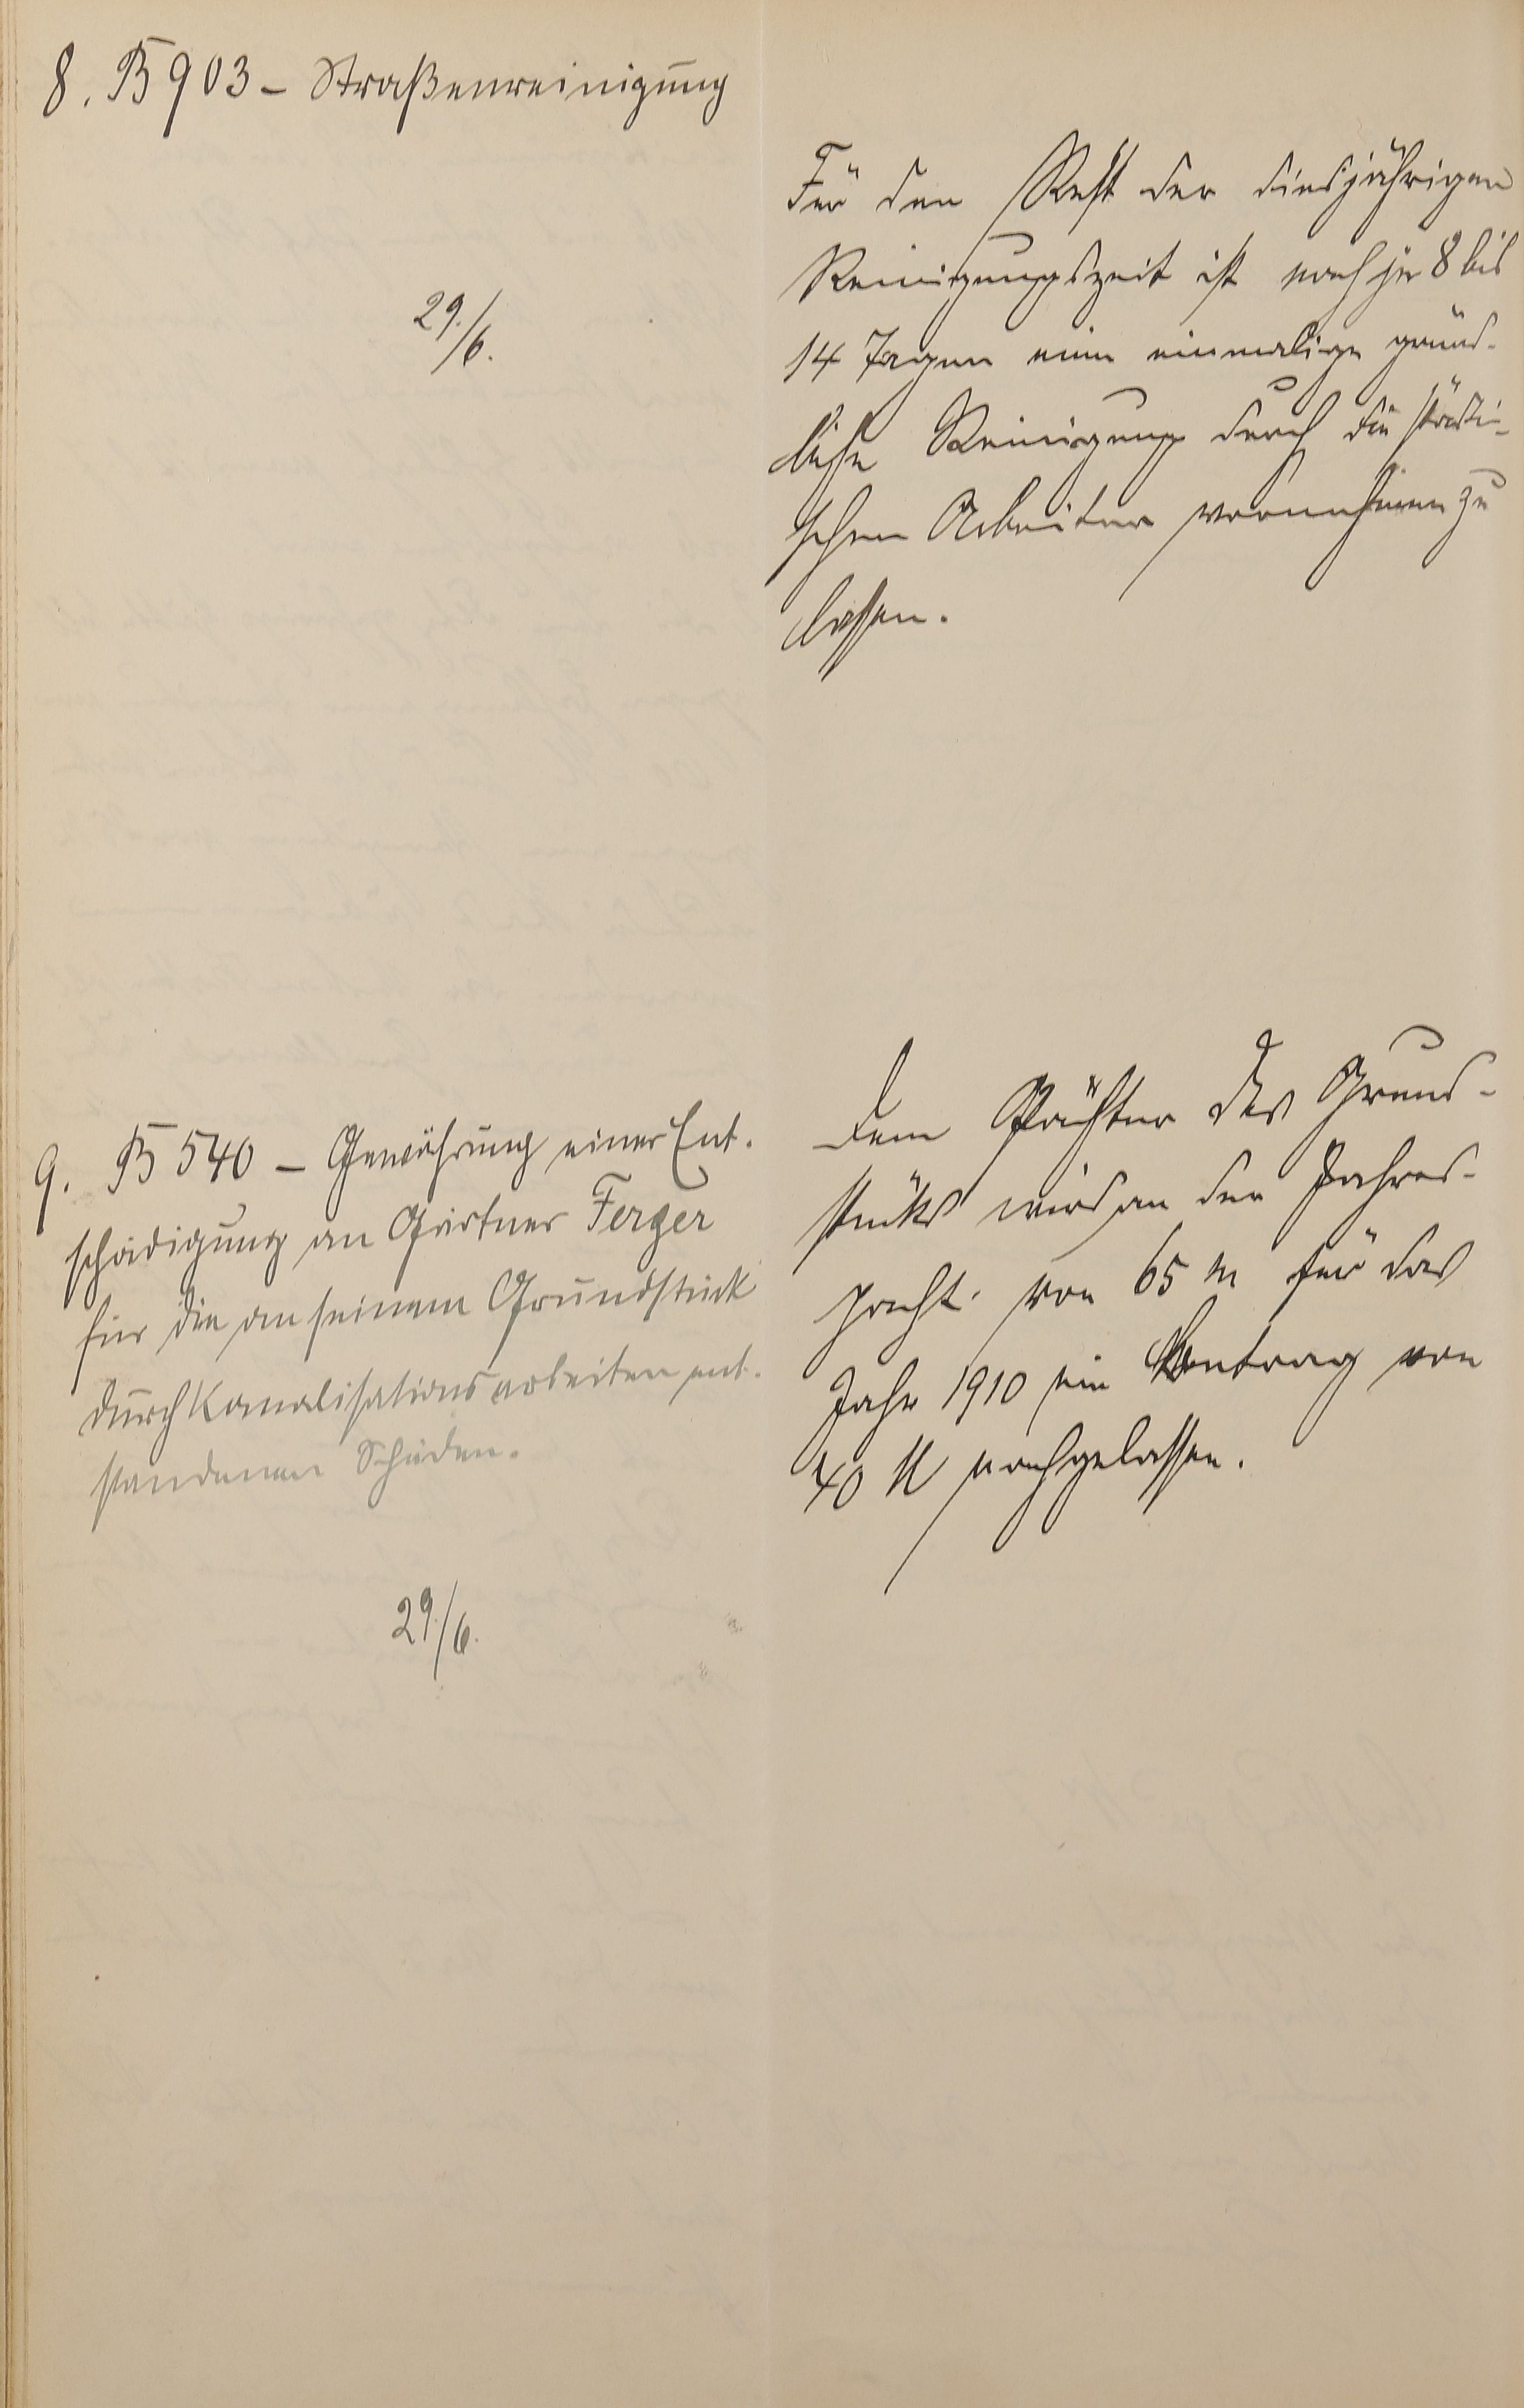 8. B 903 – Straßenreinigung
29./6.
Für den Rest der diesjährigen
Reinigungszeit ist nach je 8 bis
14 Tagen eine einmalige gründ-
liche Reinigung durch die städti-
schen Arbeiter vornehmen zu
lassen.
9. B 540 – Gewährung einer Ent-
schädigung an Gärtner Ferger
für die an seinem Grundstück
durch Kanalisationsarbeiten ent-
standenen Schäden.
29./6.
Dem Pächter des Grund-
stücks wird an der Jahres-
pacht von 65 M für das
Jahr 1910 ein Betrag von
40 M nachgelassen.